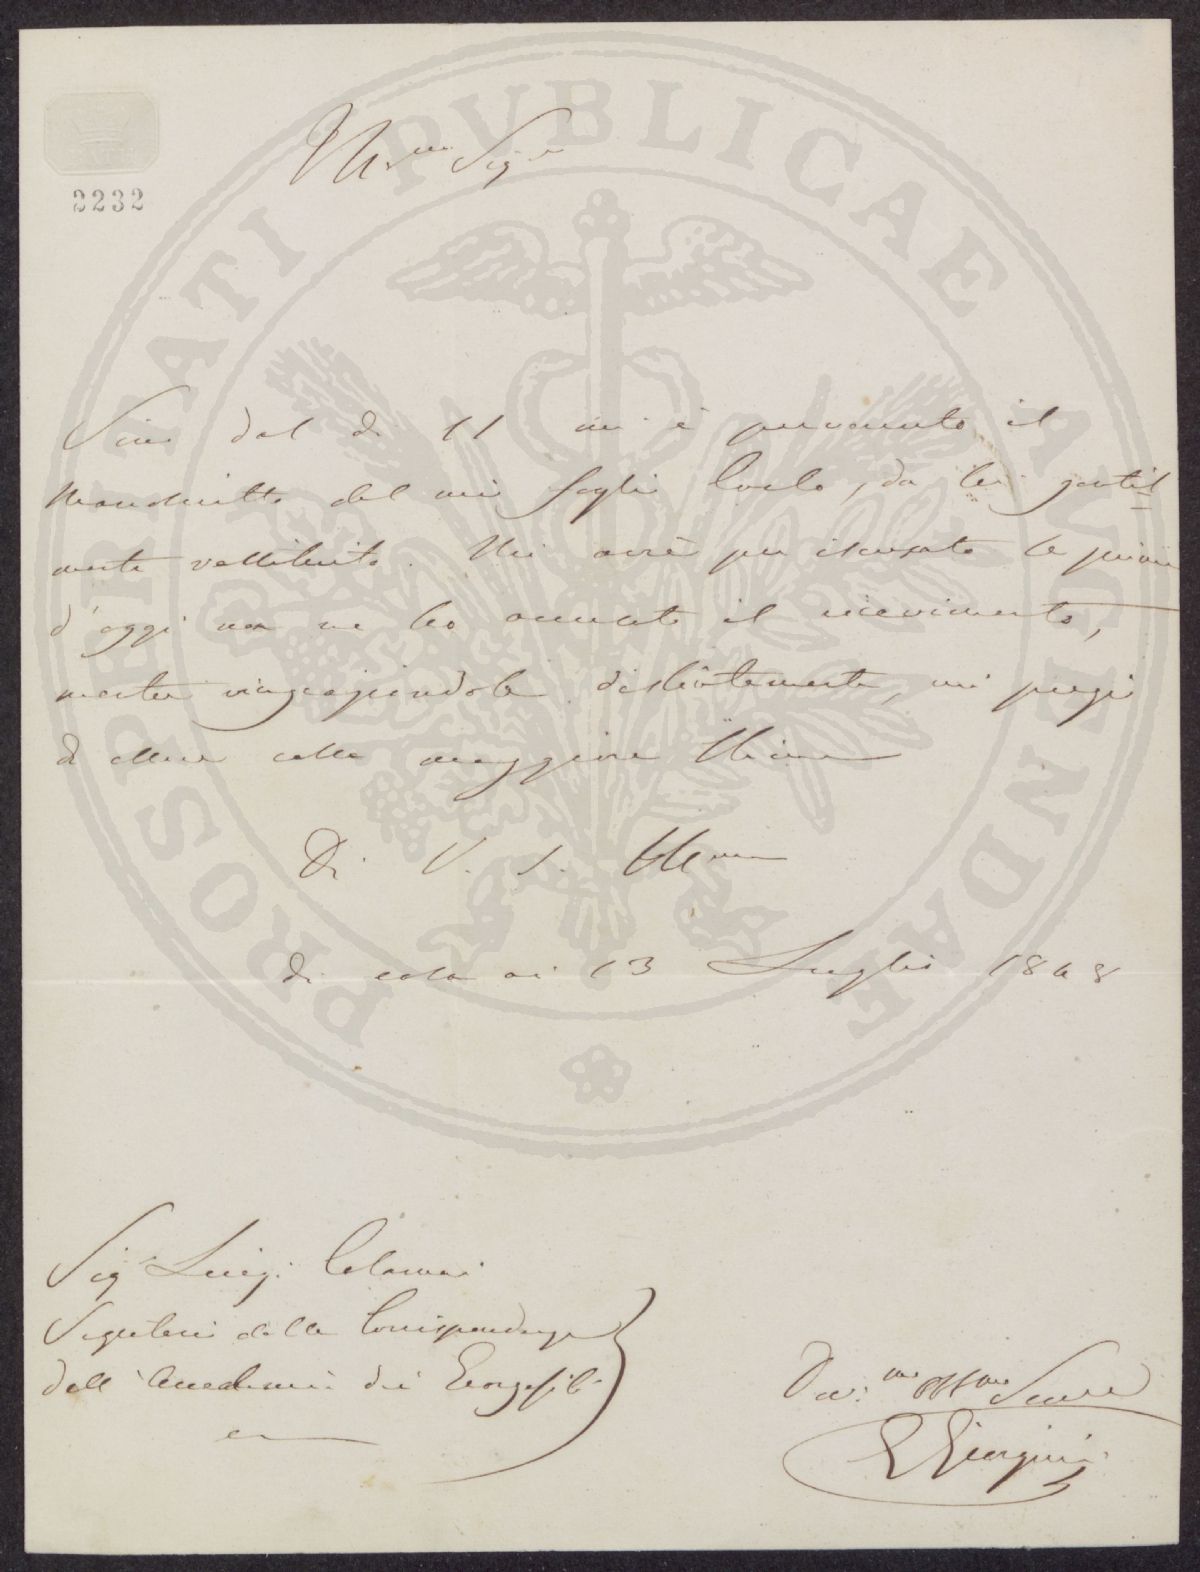 2232
PROSPERITATI PVBLICAE AVGENDAE
Ill.mo Sig.re
Sino dal dì 11 mi è pervenuto il
Manoscritto del mio foglio Carlo, da Lei gentil-
mente restituito. Mi avrà per iscusato se prima
d'oggi non ne ho accusato il ricevimento,
mentre ringraziandola distintamente, mi pregio
di essere colla maggiore stima
Di V. S. Ill.ma
di casa ai 13 Luglio 1848
Sig.r Luigi Calamai
Segretario della Corrispondenza
dell'Accademia dei Georgofili
Dev.mo Obb.mo Serv.re
Giorgini